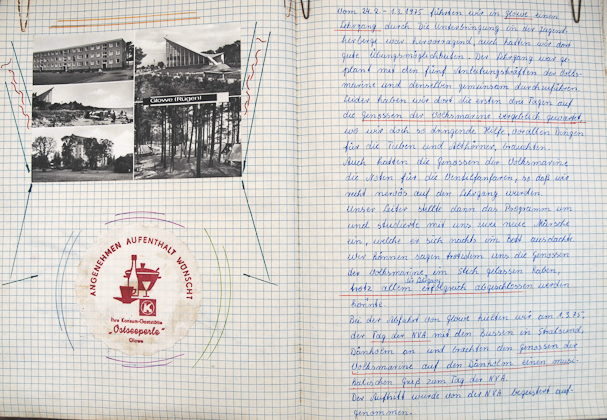 Glowe (Rügen)
ANGENEHMEN AUFENTHALT WÜNSCHT
K
Ihre Konsum-Gaststätte
"Ostseeperle"
Glowe
Vom 24.2. - 1.3.1975 führten wir in Glowe einen
Lehrgang durch. Die Unterbringung in der Jugend-
herberge war hervorragend, auch hatten wir dort
gute Übungsmöglichkeiten. Der Lehrgang war ge-
plant mit den fünf Anleitungskräften der Volks-
marine und denselben gemeinsam durchzuführen.
Leider haben wir dort die ersten drei Tagen auf
die Genossen der Volksmarine vergeblich gewartet
wo wir doch so dringende Hilfe, vor allen Dingen
für die Tuben und Althörner, brauchten.
Auch hatten die Genossen der Volksmarine
die Noten für die Ventilfanfaren, so daß wir
recht nervös auf den Lehrgang wurden.
Unser Leiter stellte dann das Programm um
und studierte mit uns zwei neue Märsche
ein, welche er sich nachts im Bett ausdachte.
Wir können sagen trotzdem uns die Genossen
der Volksmarine, im Stich gelassen haben,
trotz allem der Lehrgang erfolgreich abgeschlossen werden
konnte.
Bei der Abfahrt von Glowe hielten wir am 1.3.75,
der Tag der NVA mit den Bussen in Stralsund,
Dänholm an und brachten den Genossen der
Volksmarine auf den Dänholm einen musi-
kalischen Gruß zum Tag der NVA.
Der Auftritt wurde von der NVA begeistert auf-
genommen.